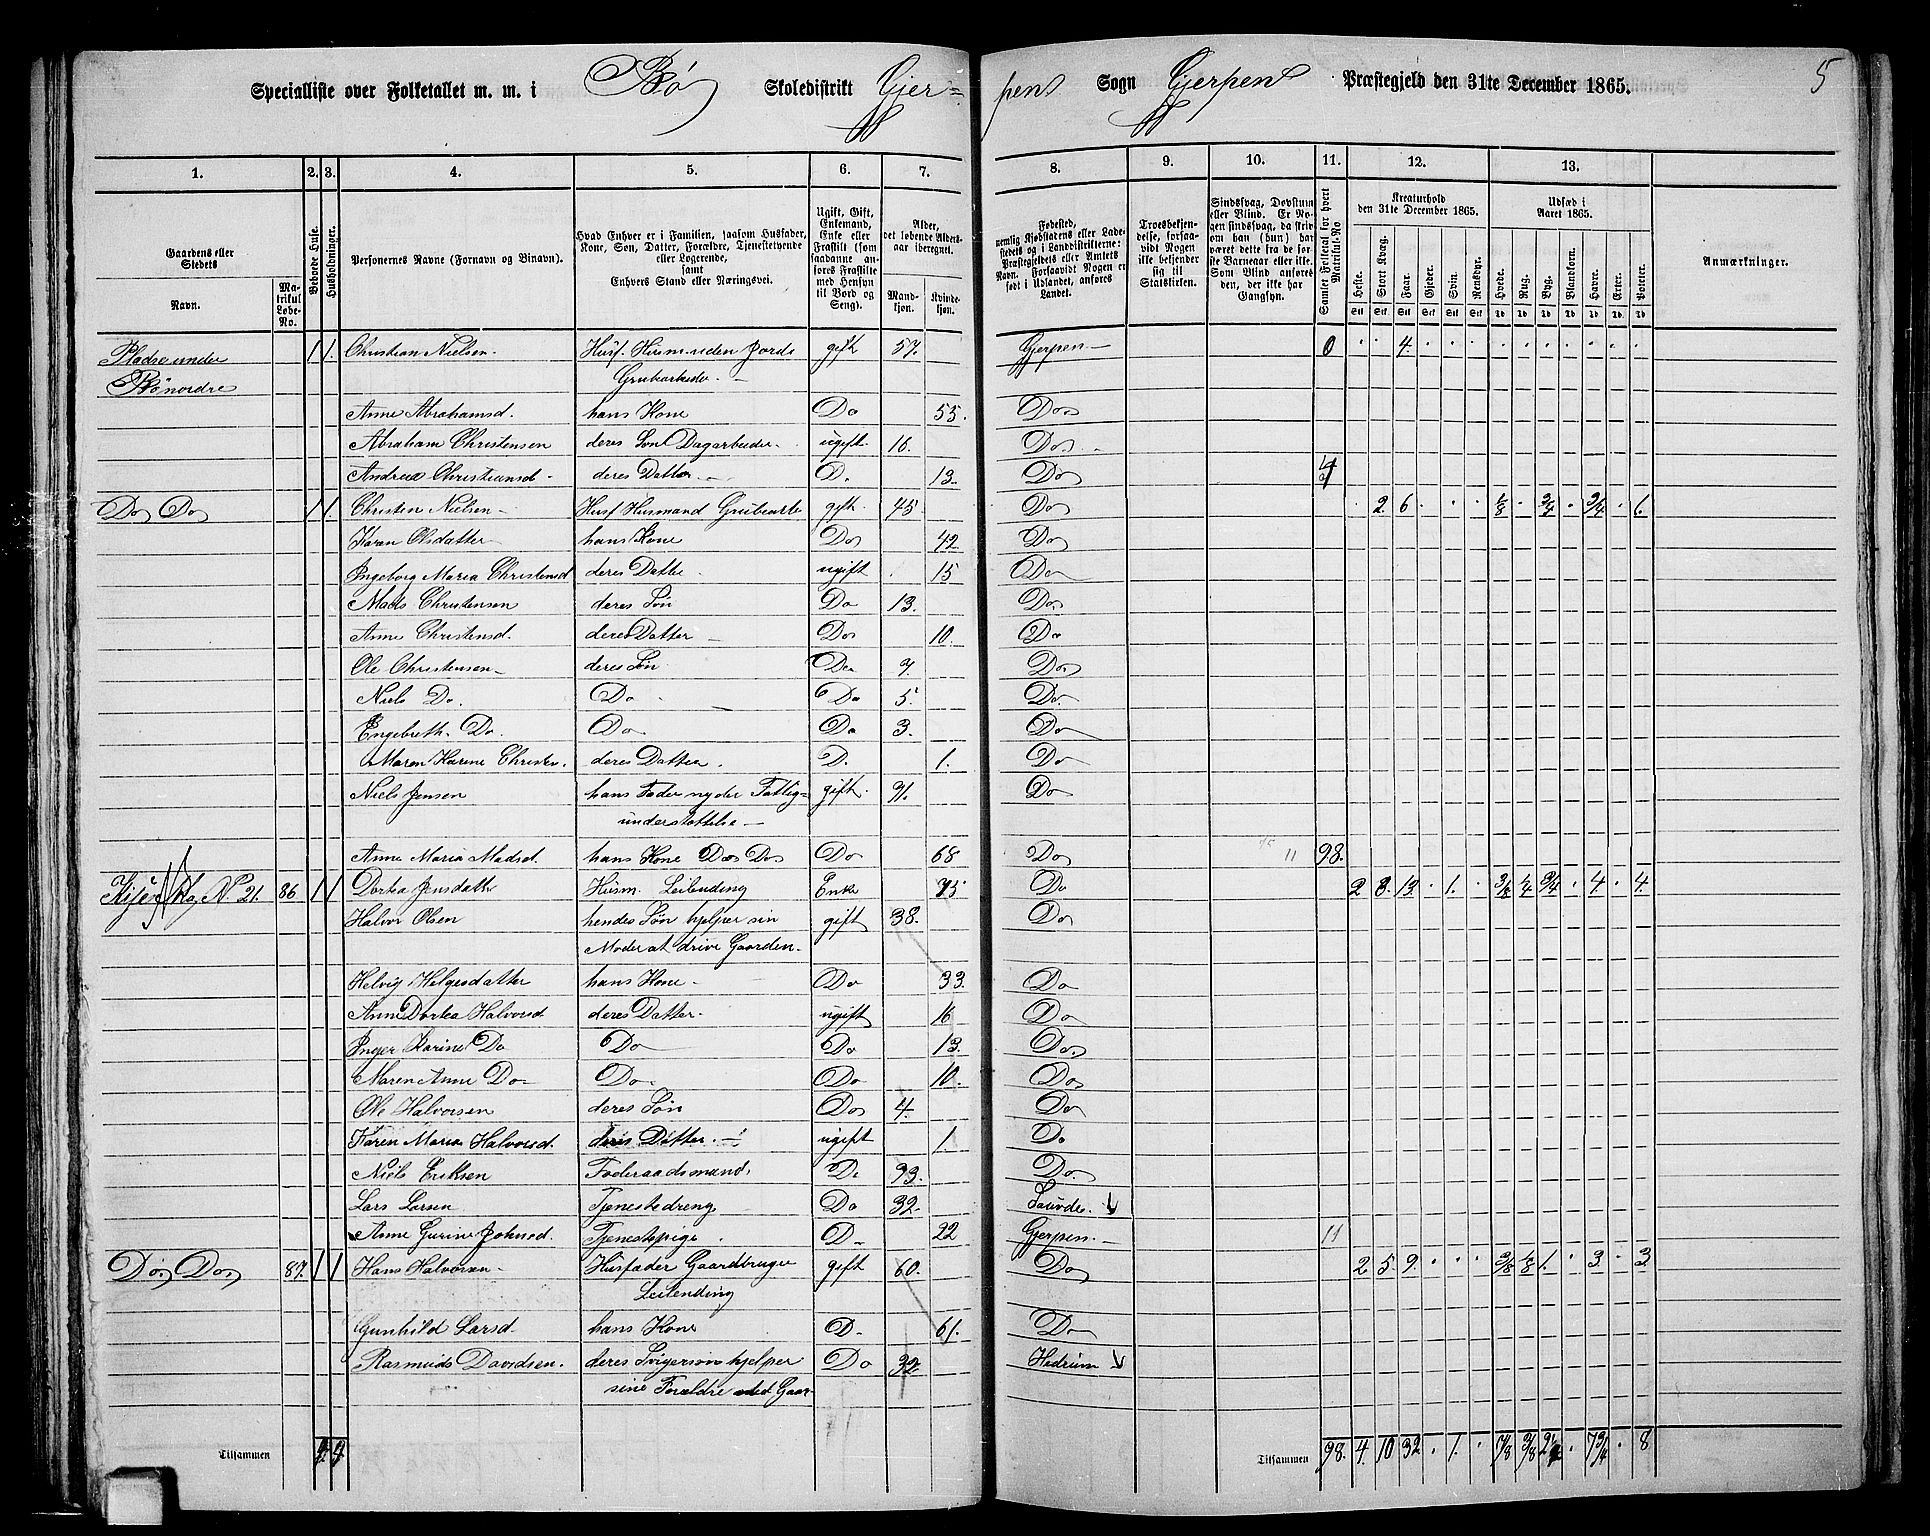 Specialliste over Folketallet m. m. i Bö Skoledistrikt Gjer=
pens Sogn Gjerpens Præstegjeld den 31te December 1865. 5
1. 2. 3. 4. 5. 6. 7. 8. 9. 10. 11. 12. 13.
Gaardens eller Stedets
Navn.
Matrikul Løbe-No.
Beboede Huse.
Husholdninger.
Personernes Navne (Fornavn og Binavn).
Hvad Enhver er i Familien, saasom Husfader, Kone, Søn, Datter, Forældre, Tjenestetyende eller Logerende, samt Enhvers Stand eller Næringsvei.
Ugift, Gift, Enkemand, Enke eller Fraskilt (som saadanne anføres Fraskilte med Hensyn til Bord og Seng).
Alder, det løbende Aldersaar iberegnet.
Mandkjøn. Kvindekjøn.
Fødested, nemlig Kjøbstadens eller Ladestedets og i Landdistrikterne: Præstegjeldets eller Amtets Navn. Forsaavidt Nogen er født i Udlandet, anføres Landet.
Troesbekjendelse, forsaavidt Nogen ikke bekjender sig til Statskirken.
Sindssvag, Døvstum eller Blind. Er Nogen sindssvag, da skrives om han (hun) har været dette fra de første Barneaar eller ikke. Som Blind anføres den, der ikke har Gangsyn.
Samlet Folketal for hvert Matrikul-No
Kreaturhold den 31te December 1865.
Heste. Stort Kvæg. Faar. Gjeder. Svin. Rensdyr.
Udsæd i Aaret 1865.
Hvede. Rug. Byg. Blandkorn. Havre. Erter. Poteter.
Anmærkninger.
Pladse under 1 1. Christian Nielsen Husf. Husm. uden Jord gift 57. Gjerpen 0 4.
Bönordre Grubearbeider
Anne Abrahamsd. hans Kone Do 55. Do
Abraham Christensen deres Søn Dagarbeider ugift 16. Do
Andrea Christiansd deres Datter D. 13. Do 4
Do Do 1 1. Christen Nielsen Husf Husmand Grubearb gift 45 Do 2 6 1/8 3/4 9/4 6.
Karen Olsdatter hans Kone Do 42 Do
Ingeborg Maria Christensd deres Datter ugift 15 Do
Mads Christensen deres Søn Do 13. Do
Anne Christensd. deres Datter Do 10. Do
Ole Christensen deres Søn Do 7. Do
Niels Do. Do Do 5. Do
Engebreth Do. Do Do 3. Do
Maren Karine Christen. deres Datter D. 1. Do
Niels Jensen hans Fader nyder Fattig= gift 91. Do
understøttelse
Anne Maria Madsd. hans Kone Do Do Do 68 Do 11 98.
No 21. 86 1 1 Dortea Jensdatter Husm. Leilending Enke 75 Do 2 8 13 1. 3/8 1/4 9/4 4. 4.
Halvor Olsen hendes Søn hjelper sin gift 38. Do
Moder at drive Gaarden
Helvig Helgesdatter hans Kone Do 33. Do
Anne Dortea Halvorsd deres Datter ugift 16 Do
Inger Karine Do Do Do 13. Do
Maren Anne Do Do Do 10. Do
Ole Halvorsen deres Søn Do 4. Do
Karen Maria Halvorsd. deres Datter ugift 1. Do
Niels Eriksen Foderaadsmand D. 93. Do
Lars Larsen Tjenestedreng Do 32. Sauvde
Anne Gurine Johnsd. Tjenestepige D. 22 Gjerpen 11
Do Do 87. 1 1 Hans Halvorsen Husfader Gaardbruger gift 60. Do 2 5 9. 3/8 1/8 1. 3. 3.
Leilending
Gunhild Larsd. hans Kone D. 61. Do
Rasmus Davidsen. deres Svigersøn hjelper Do 32 Hedrum
sine Forældre ved Gaar
Tilsammen 4. 4
Tilsammen 98. 4. 10 32 1. 7/8 3/8 7 3/4 8